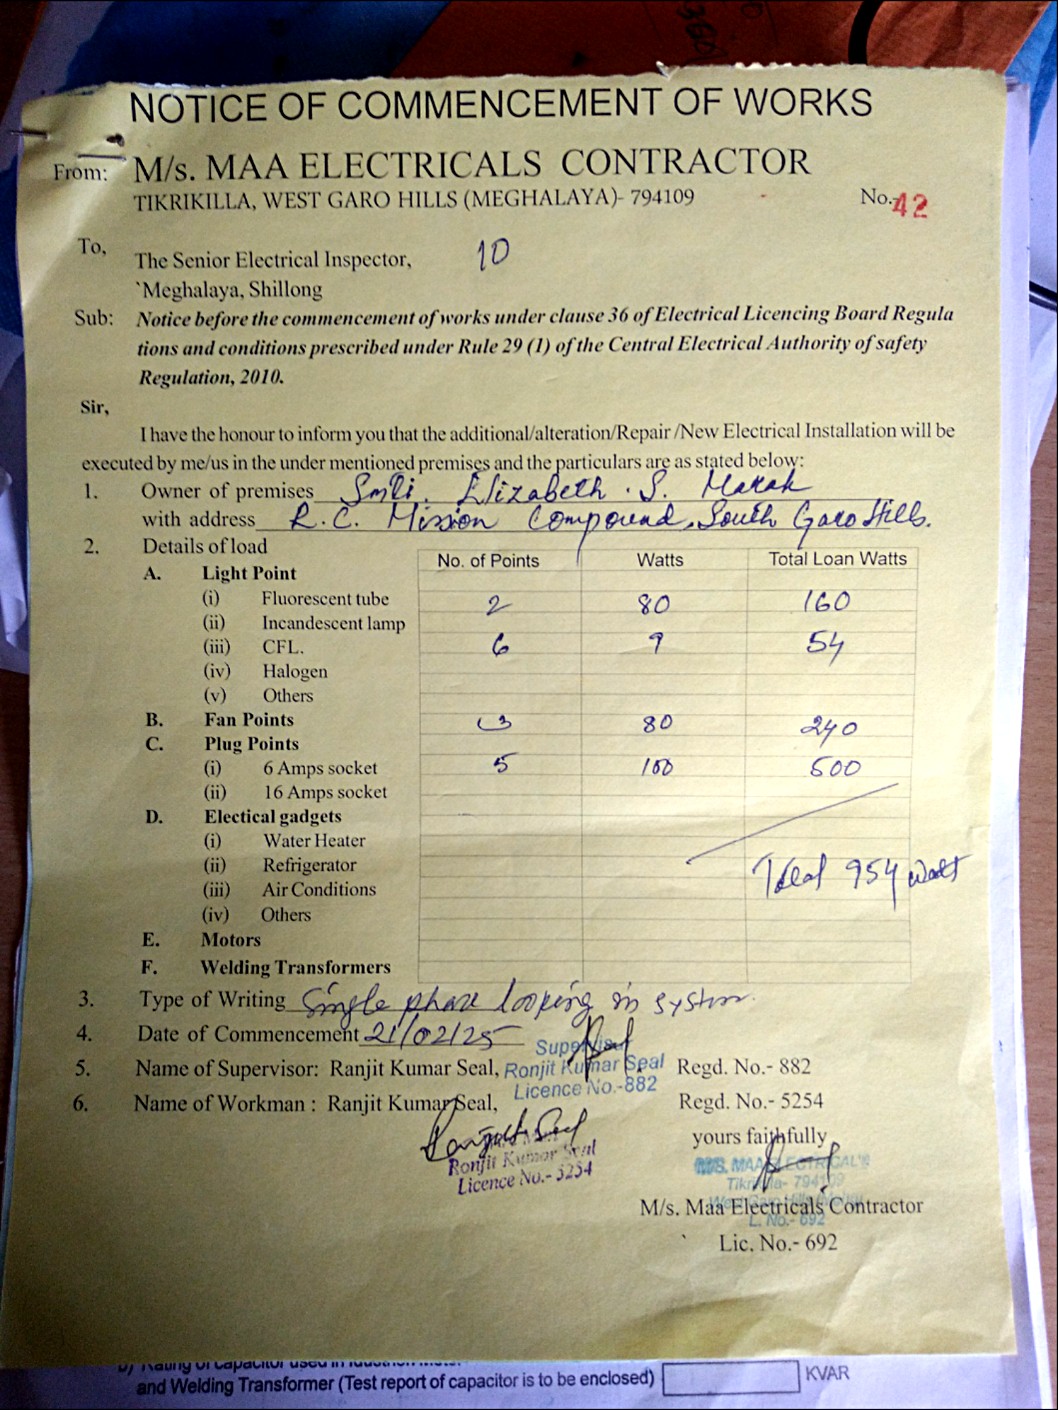 NOTICE OF COMMENCEMENT OF WORKS
From: M/s. MAA ELECTRICALS CONTRACTOR
TIKRIKILLA, WEST GARO HILLS (MEGHALAYA)- 794109 No.- 42
To,
The Senior Electrical Inspector, 10
`Meghalaya, Shillong
Sub: Notice before the commencement of works under clause 36 of Electrical Licencing Board Regula
tions and conditions prescribed under Rule 29 (1) of the Central Electrical Authority of safety
Regulation, 2010.
Sir,
I have the honour to inform you that the additional/alteration/Repair /New Electrical Installation will be
executed by me/us in the under mentioned premises and the particulars are as stated below:
1. Owner of premises Smti. Elizabeth . S. Marak
with address R.C. Mission Compound, South Garo Hills.
2. Details of load No. of Points Watts Total Loan Watts
A. Light Point
(i) Fluorescent tube 2 80 160
(ii) Incandescent lamp
(iii) CFL. 6 9 54
(iv) Halogen
(v) Others
B. Fan Points 3 80 240
C. Plug Points
(i) 6 Amps socket 5 100 500
(ii) 16 Amps socket
D. Electical gadgets
(i) Water Heater
(ii) Refrigerator Total 954 watt
(iii) Air Conditions
(iv) Others
E. Motors
F. Welding Transformers
3. Type of Writing Single phase looping in system.
4. Date of Commencement 21/02/25
Supervisor
5. Name of Supervisor: Ranjit Kumar Seal, Ronjit Kumar Seal Regd. No.- 882
Licence No.-882
6. Name of Workman : Ranjit Kumar Seal, Regd. No.- 5254
yours faithfully
Ronjit Kumar Seal
Licence No.- 5254
M/S. MAA ELECTRICAL'S
Tikrikilla- 794109
M/s. Maa Electricals Contractor
L. No.- 692
Lic. No.- 692
and Welding Transformer (Test report of capacitor is to be enclosed) KVAR